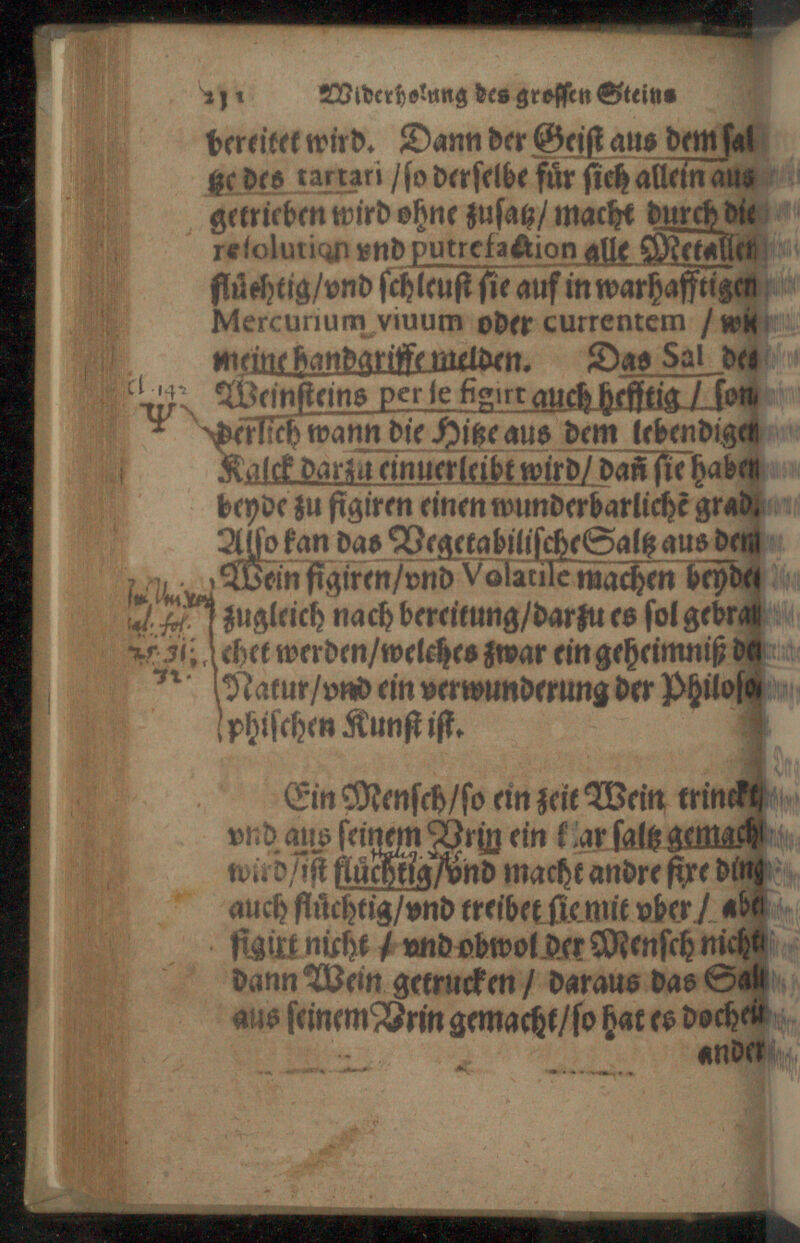 232 Widerholung des groſſen Steins
bereitet wird. Dann der Geiſt aus dem ſal
tze des tartari / ſo derſelbe fuͤr ſich allein aus
getrieben wird ohne zuſatz / macht durch die
reſolution vnd putrefaction alle Metallen
fluͤchtig / vnd ſchleuſt ſie auf in warhafftigen
Mercurium viuum oder currentem / wie
meine handgriffe melden. Das Sal des
Weinſteins per ſe figirt auch hefftig / ſon
derlich wann die Hitze aus dem lebendigen
Kalck darzu einuerleibt wird / dañ ſie haben
beyde zu figiren einen wunderbarlichẽ grad /
Alſo kan das Vegetabiliſche Saltz aus dem
Wein figiren / vnd Volatile machen beydes
zugleich nach bereitung / darzu es ſol gebrau
chet werden / welches zwar ein geheimniß der
Natur / vnd ein verwunderung der Philoſo
phiſchen Kunſt iſt.
Ein Menſch / ſo ein zeit Wein trinckt /
vnd aus ſeinem Vrin ein klar ſaltz gemacht
wird / iſt fluͤchtig / vnd macht andre fixe ding
auch fluͤchtig / vnd treibet ſie mit vber / aber
figirt nicht / vnd obwol der Menſch nichts
dann Wein getruncken / daraus das Saltz
aus ſeinem Vrin gemacht / ſo hat es doch ein
ander